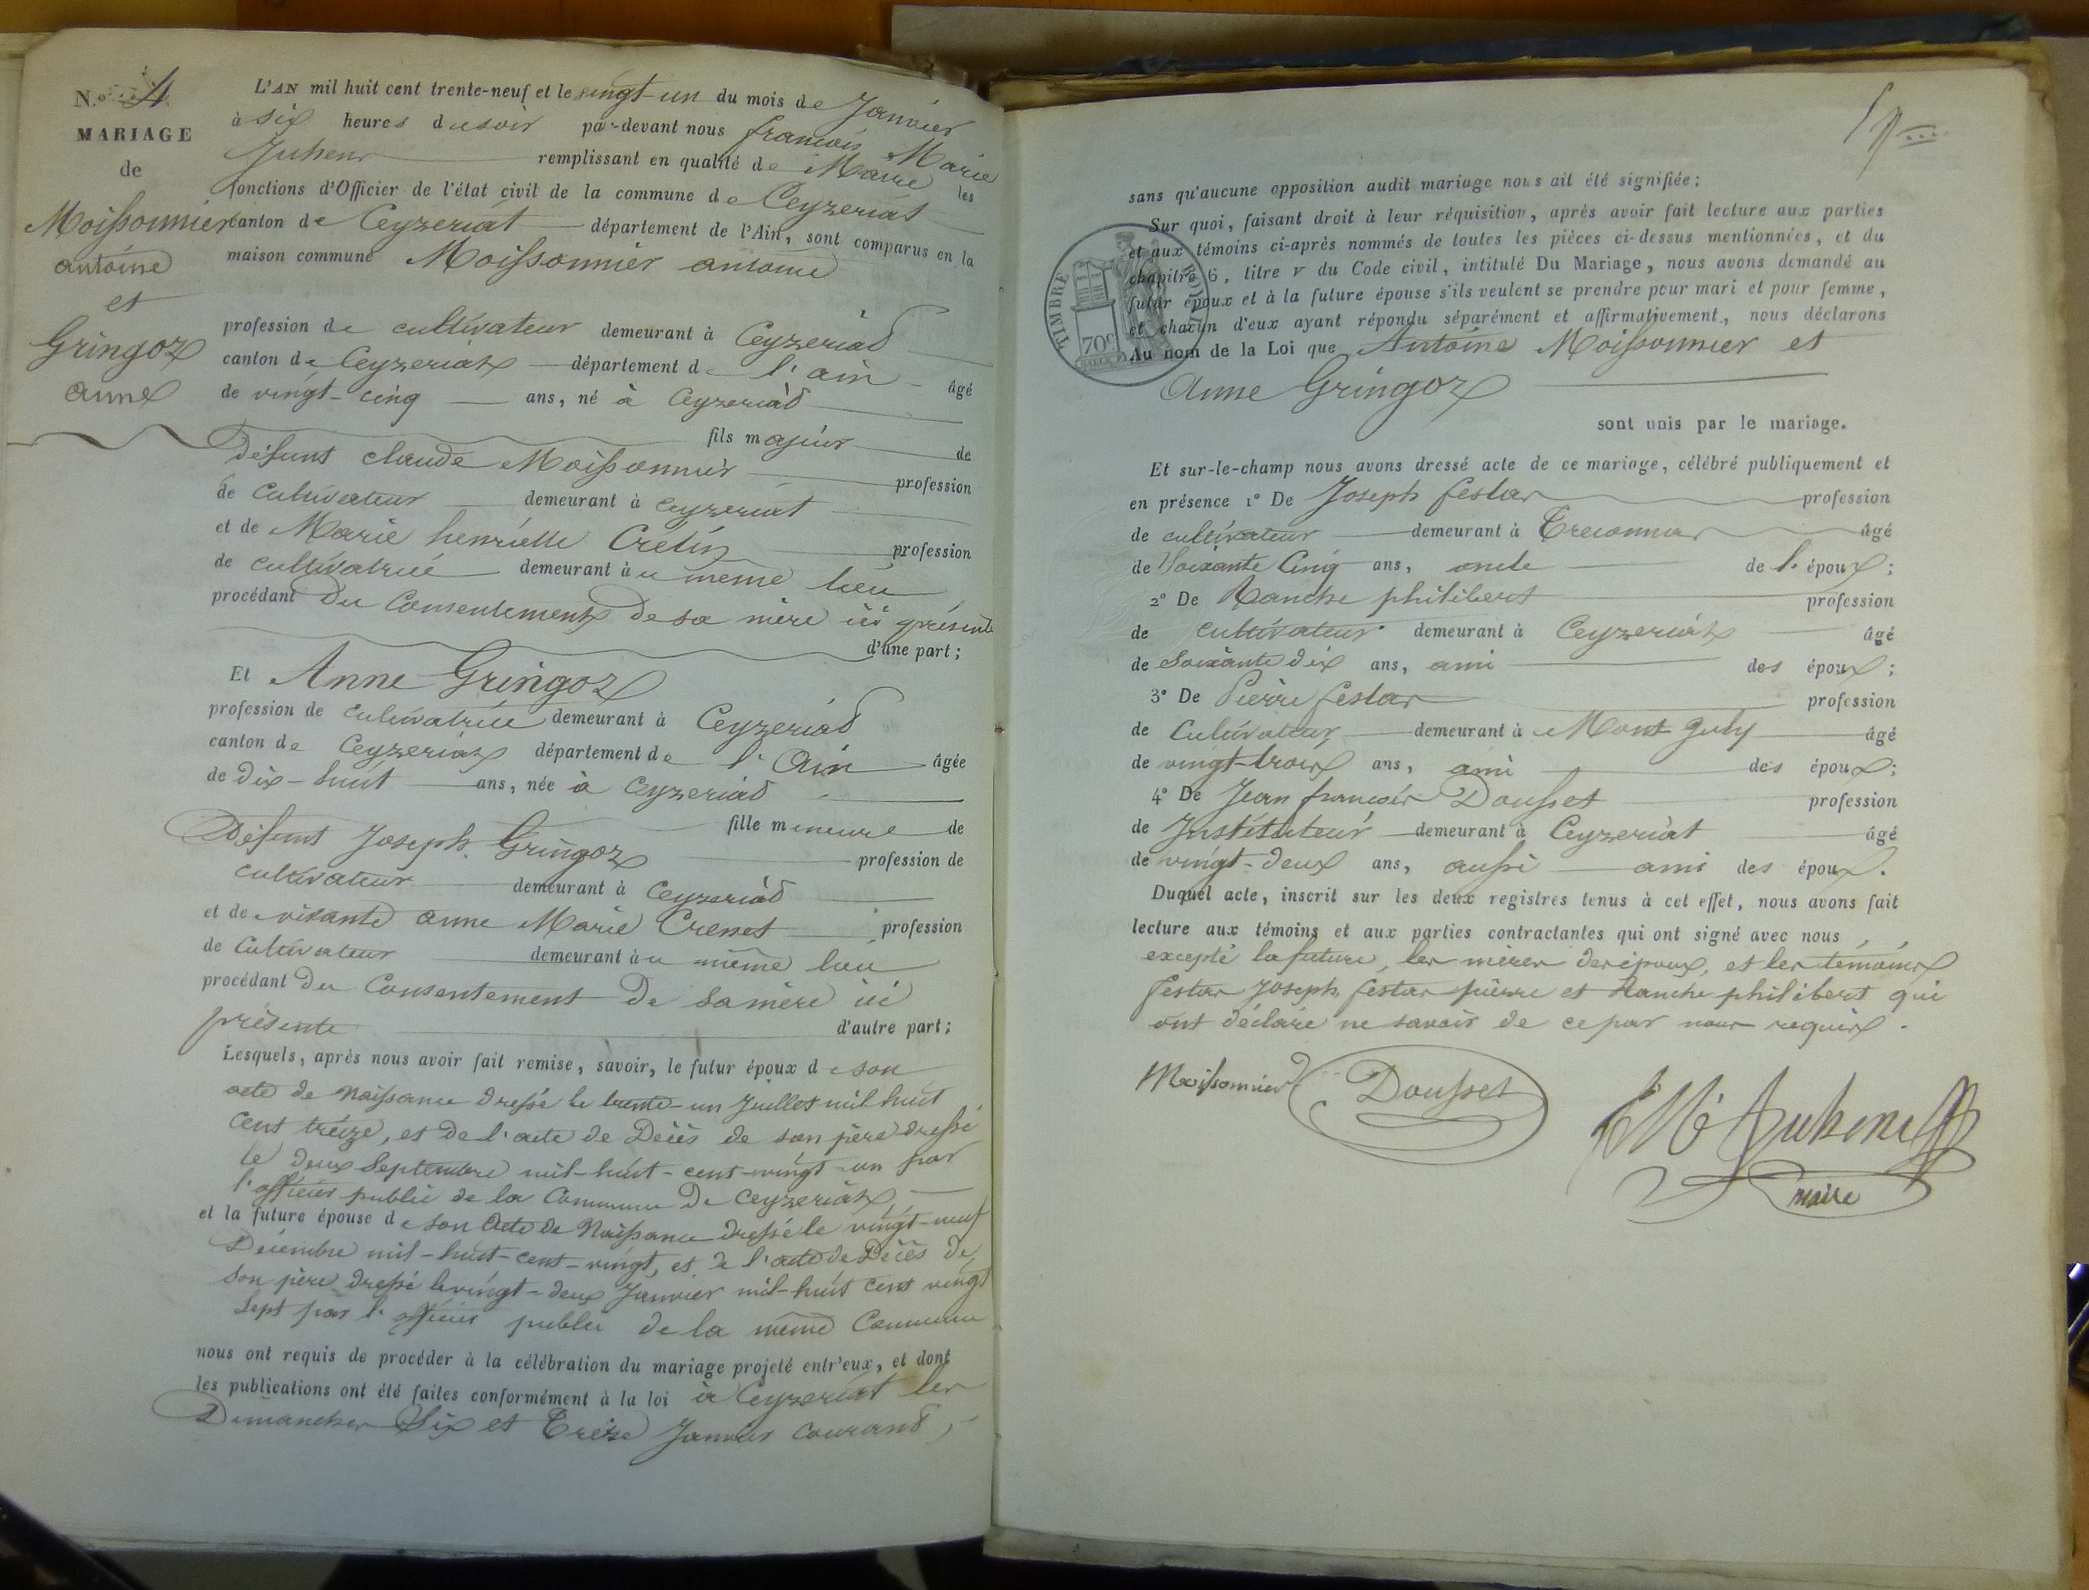 N.º 4
MARIAGE
de
Moissonnier
antoine
et
Gringoz
anne
L'AN mil huit cent trente-neuf et le vingt-un du mois de Janvier
à six heures du soir par-devant nous françois Marie
remplissant en qualité de Maire les
fonctions d'Officier de l'état civil de la commune de Ceyzeriat
canton de Ceyzeriat département de l'Ain, sont comparus en la
maison commune Moissonnier antoine
profession de cultivateur demeurant à Ceyzeriat
canton de Ceyzeriat département de l'ain âgé
de vingt-cinq ans, né à Ceyzeriat
fils majeur de
Défunt claude Moissonnier profession
de cultivateur demeurant à ceyzeriat
et de Marie henriette Cretin profession
de cultivatrice demeurant àu même lieu
procédant du Consentement de sa mère ici présente
d'une part;
Et Anne Gringoz
profession de cultivatrice demeurant à Ceyzeriat
canton de Ceyzeriat département de l'Ain âgée
de dix-huit ans, née à Ceyzeriat
fille mineure de
Défunt Joseph Gringoz profession de
cultivateur demeurant à Ceyzeriat
et de vivante anne Marie profession
de Cultivateur demeurant àu même lieu
procédant du Consentement de sa mère ici
présente d'autre part;
Lesquels, après nous avoir fait remise, savoir, le futur époux de son
acte de Naissance dressé le trente-un Juillet mil huit
cent treize, et de l'acte de Décès de son père dressé
le deux Septembre mil-huit-cent-vingt-un par
l'officier public de la Commune de Ceyzeriat,
et la future épouse de son Acte de Naissance dressé le vingt-neuf
Décembre mil-huit-cent-vingt, et de l'acte de Décès de
son père dressé le vingt-deux Janvier mil-huit cent vingt
Sept par l'officier public de la même Commune
nous ont requis de procéder à la célébration du mariage projeté entr'eux, et dont
les publications ont été faites conformément à la loi à Ceyzeriat les
Dimanches Six et Treize Janvier courant,
sans qu'aucune opposition audit mariage nous ait été signifiée;
Sur quoi, faisant droit à leur réquisition, après avoir fait lecture aux parties
et aux témoins ci-après nommés de toutes les pièces ci-dessus mentionnées, et du
chapitre 6, titre V du Code civil, intitulé Du Mariage, nous avons demandé au
futur époux et à la future épouse s'ils veulent se prendre pour mari et pour femme,
et chacun d'eux ayant répondu séparément et affirmativement, nous déclarons
Au nom de la Loi que Antoine Moissonnier et
Anne Gringoz
sont unis par le mariage.
TIMBRE ROYAL
70c
Et sur-le-champ nous avons dressé acte de ce mariage, célébré publiquement et
en présence 1º De Joseph festar profession
de cultivateur demeurant à âgé
de Soixante Cinq ans, oncle de l'époux;
2º De Ranche philibert profession
de cultivateur demeurant à Ceyzeriat âgé
de soixante dix ans, ami des époux;
3º De Pierre festar profession
de Cultivateur demeurant à Mont July âgé
de vingt-trois ans, ami des époux;
4º De Jean françois Dousset profession
de Instituteur demeurant à Ceyzeriat âgé
de vingt-deux ans, aussi ami des époux.
Duquel acte, inscrit sur les deux registres tenus à cet effet, nous avons fait
lecture aux témoins et aux parties contractantes qui ont signé avec nous,
excepté la future, les mères des époux, et les témoins
festar Joseph, festar pierre et Ranche philibert qui
ont déclaré ne savoir de ce par nous requis.
Moissonnier Dousset
maire